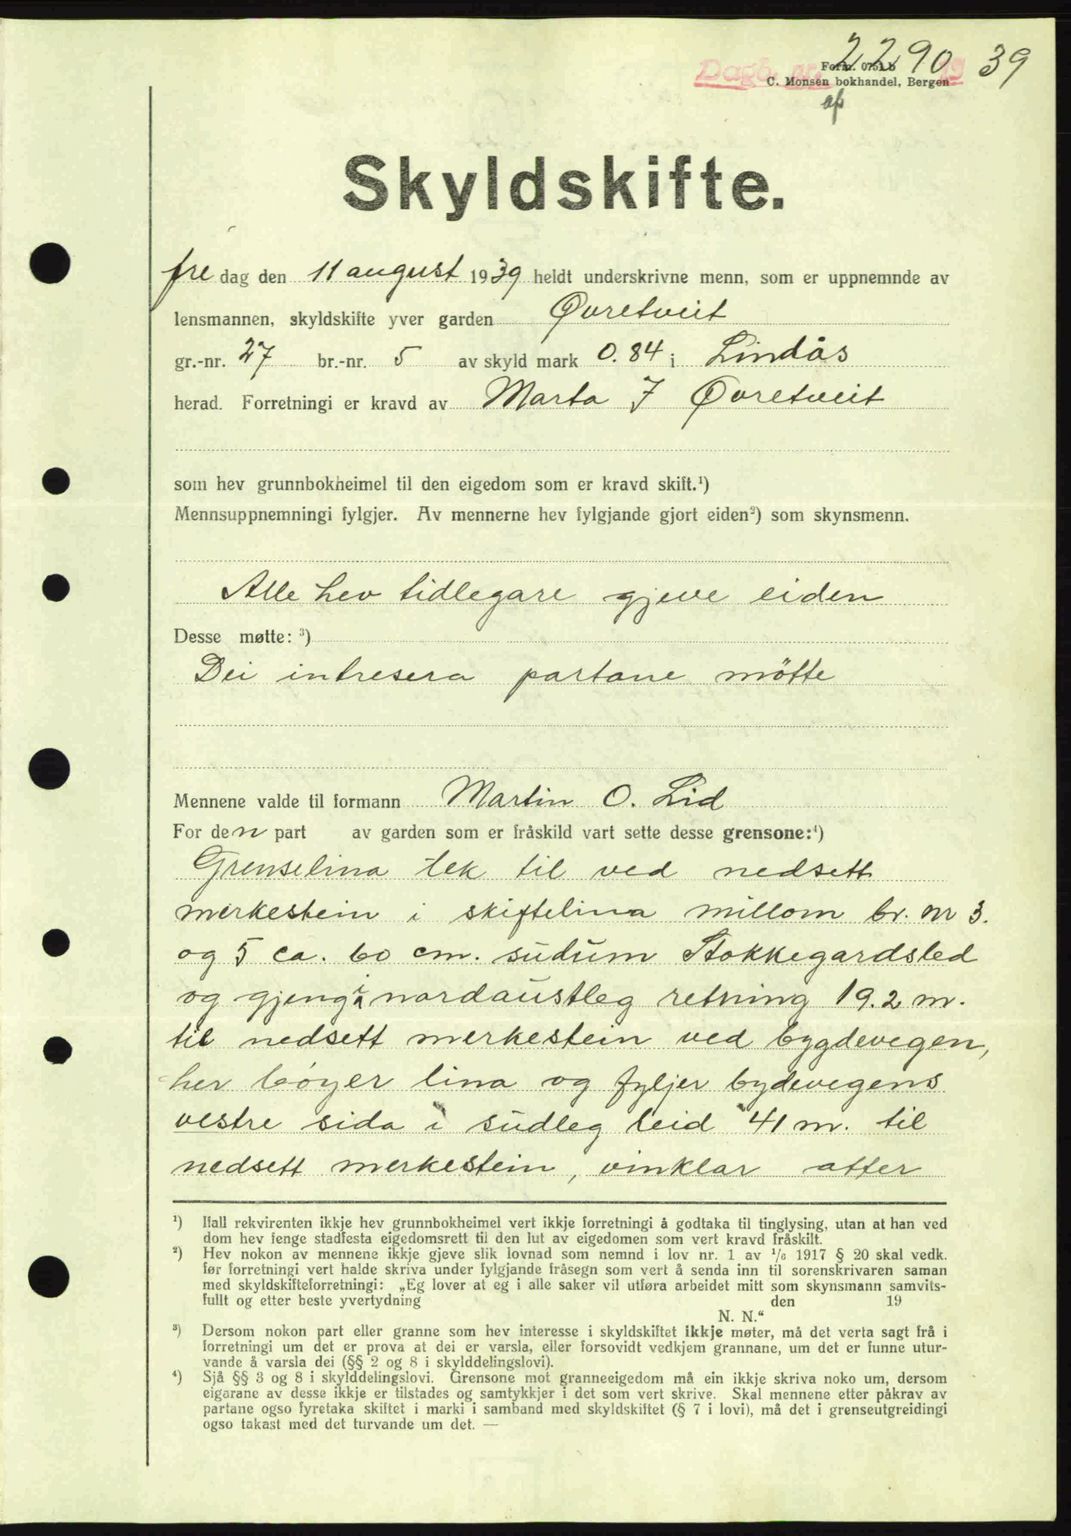 2290 39
Dagb. nr. 19
Form. 0751 b
C. Monsen bokhandel, Bergen
Skyldskifte.
fre dag den 11 august 1939 heldt underskrivne menn, som er uppnemnde av
lensmannen, skyldskifte yver garden Øvretveit
gr.-nr. 27 br.-nr. 5 av skyld mark 0.84 i Lindås
herad. Forretningi er kravd av Marta J Øvretveit
som hev grunnbokheimel til den eigedom som er kravd skift.¹)
Mennsuppnemningi fylgjer. Av mennerne hev fylgjande gjort eiden²) som skynsmenn.
Alle hev tidlegare gjeve eiden
Desse møtte: ³)
Dei intresera partane mötte
Mennene valde til formann Martin O. Lid
For den part av garden som er fråskild vart sette desse grensone:⁴)
Grenselina tek til ved nedsett
merkestein i skiftelina millom br. nr 3.
og 5 ca. 60 cm. sudum Stokkegardsled
og gjeng i nordaustleg retning 19.2 m.
til nedsett merkestein ved bygdevegen,
her bøyer lina og fyljer bydevegens
vestre sida i sudleg leid 41 m. til
nedsett merkestein, vinklar atter
¹) Hall rekvirenten ikkje hev grunnbokheimel vert ikkje forretningi å godtaka til tinglysing, utan at han ved
dom hev fenge stadfesta eigedomsrett til den lut av eigedomen som vert kravd fråskilt.
²) Hev nokon av mennene ikkje gjeve slik lovnad som nemnd i lov nr. 1 av ¹/₆ 1917 § 20 skal vedk.
før forretningi vert halde skriva under fylgjande fråsegn som vert å senda inn til sorenskrivaren saman
med skyldskifteforretningi: „Eg lover at eg i alle saker vil utføra arbeidet mitt som skynsmann samvits-
fullt og etter beste yvertydning den 19
N. N.“
³) Dersom nokon part eller granne som hev interesse i skyldskiftet ikkje møter, må det verta sagt frå i
forretningi um det er prova at dei er varsla, eller forsovidt vedkjem grannane, um det er funne utur-
vande å varsla dei (§§ 2 og 8 i skylddelingslovi).
⁴) Sjå §§ 3 og 8 i skylddelingslovi. Grensone mot granneeigedom må ein ikkje skriva noko um, dersom
eigarane av desse ikkje er tilstades og samtykkjer i det som vert skrive. Skal mennene etter påkrav av
partane ogso fyretaka skiftet i marki i samband med skyldskiftet (§ 7 i lovi), må det i grenseutgreidingi
ogso takast med det turvande um det. —